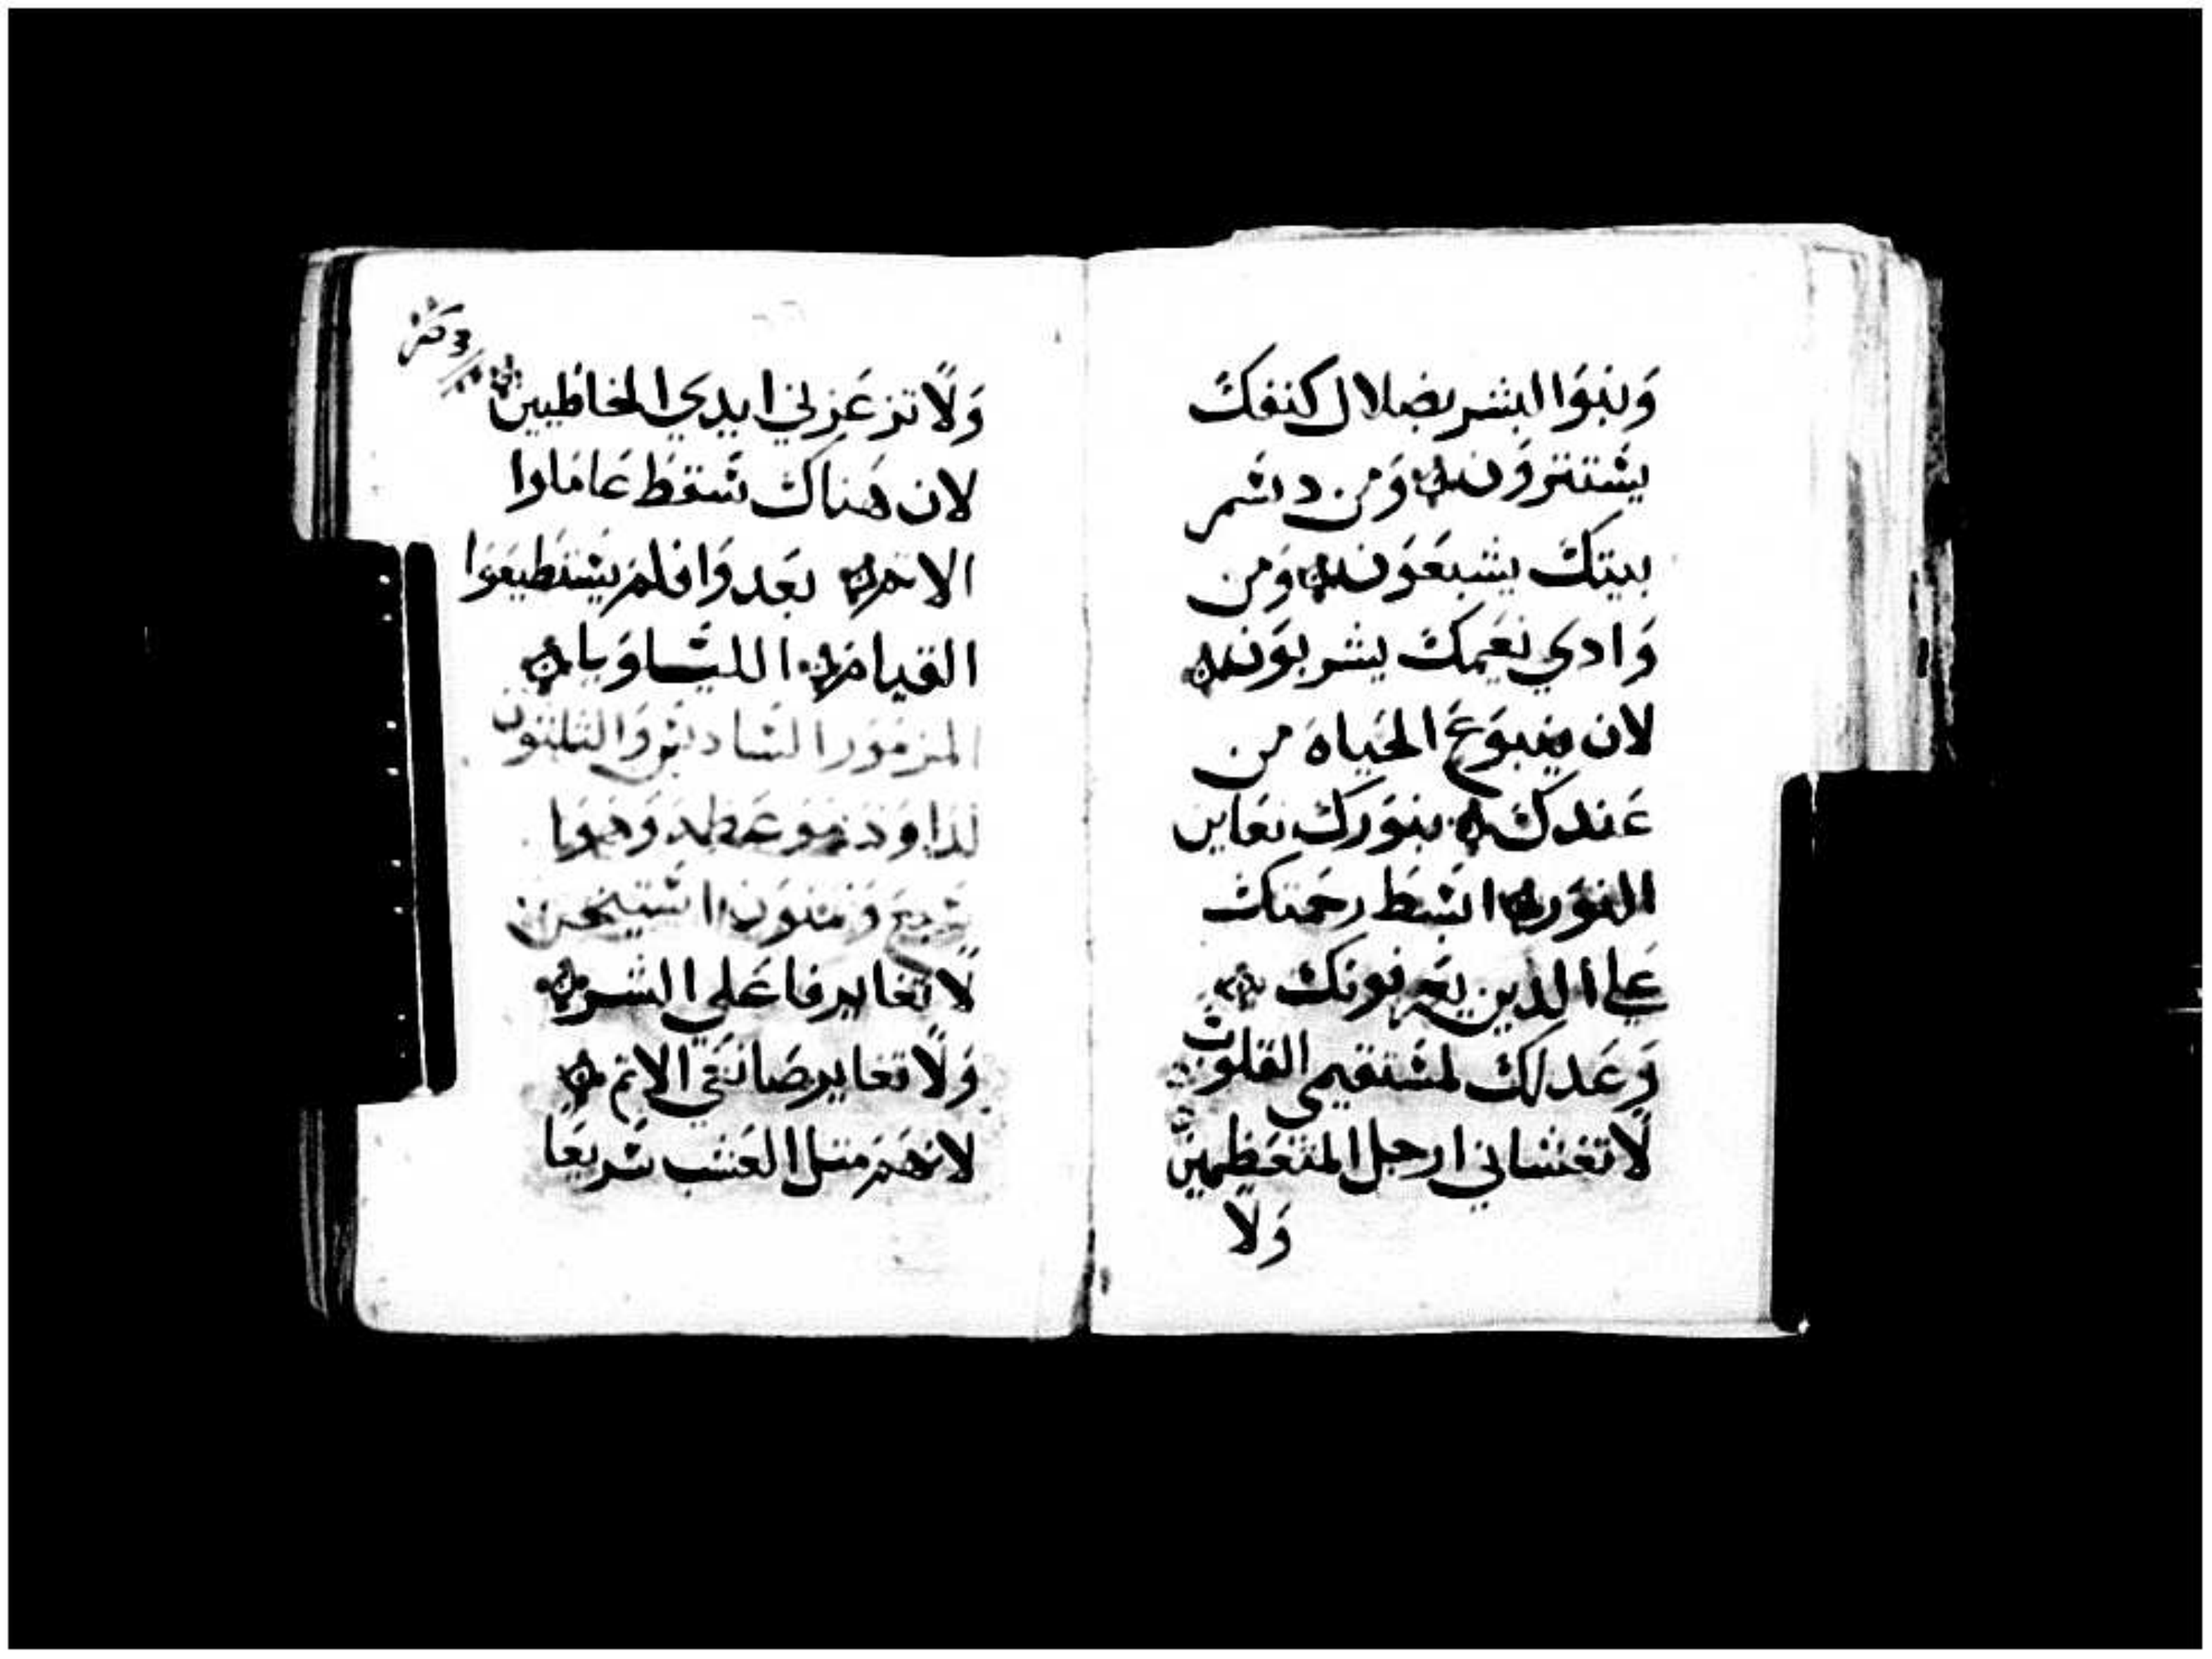 وَبنوَا البشر بضلال كنفكَ
يسَتترَوَن وَمن دسَمر
بيتكَ يشبعَوَن وَمن
وَادي نعَيمكَ يشربوَن
لان ينبوَعَ الحَياه من
عَندكَ بنوَركَ نعَاين
النوَر ابسَط رحَمتكَ
عَلي الدين يعَرفونكَ
وَعَدلكَ لمسَتقيمي القلوَب
لَا تغشاني ارجل المتعَظمين
وَلَا
وَلَا تزعَزعني ايدي الخاطيين
لان هَناكَ سَقطَ عَاملوا
الاتمر بعَدوَا فلمَ يسَتطيعَوا
القيامَ الليسَاوَيا
المزمَوَر السَادسَ وَالتلتوَن
لداوَد
لَا تغاير علي الشر
وَلَا تغاير صانعَي الاتم
لانهَمَ متل العَشب سَريعَا